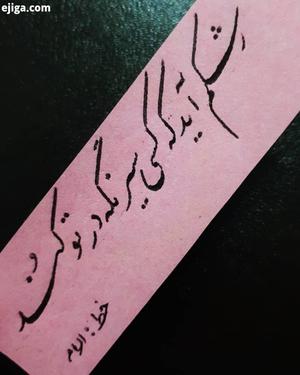 ejiga.com
رشکم آید که کسی سیر نگه در تو کند
خط: الهام